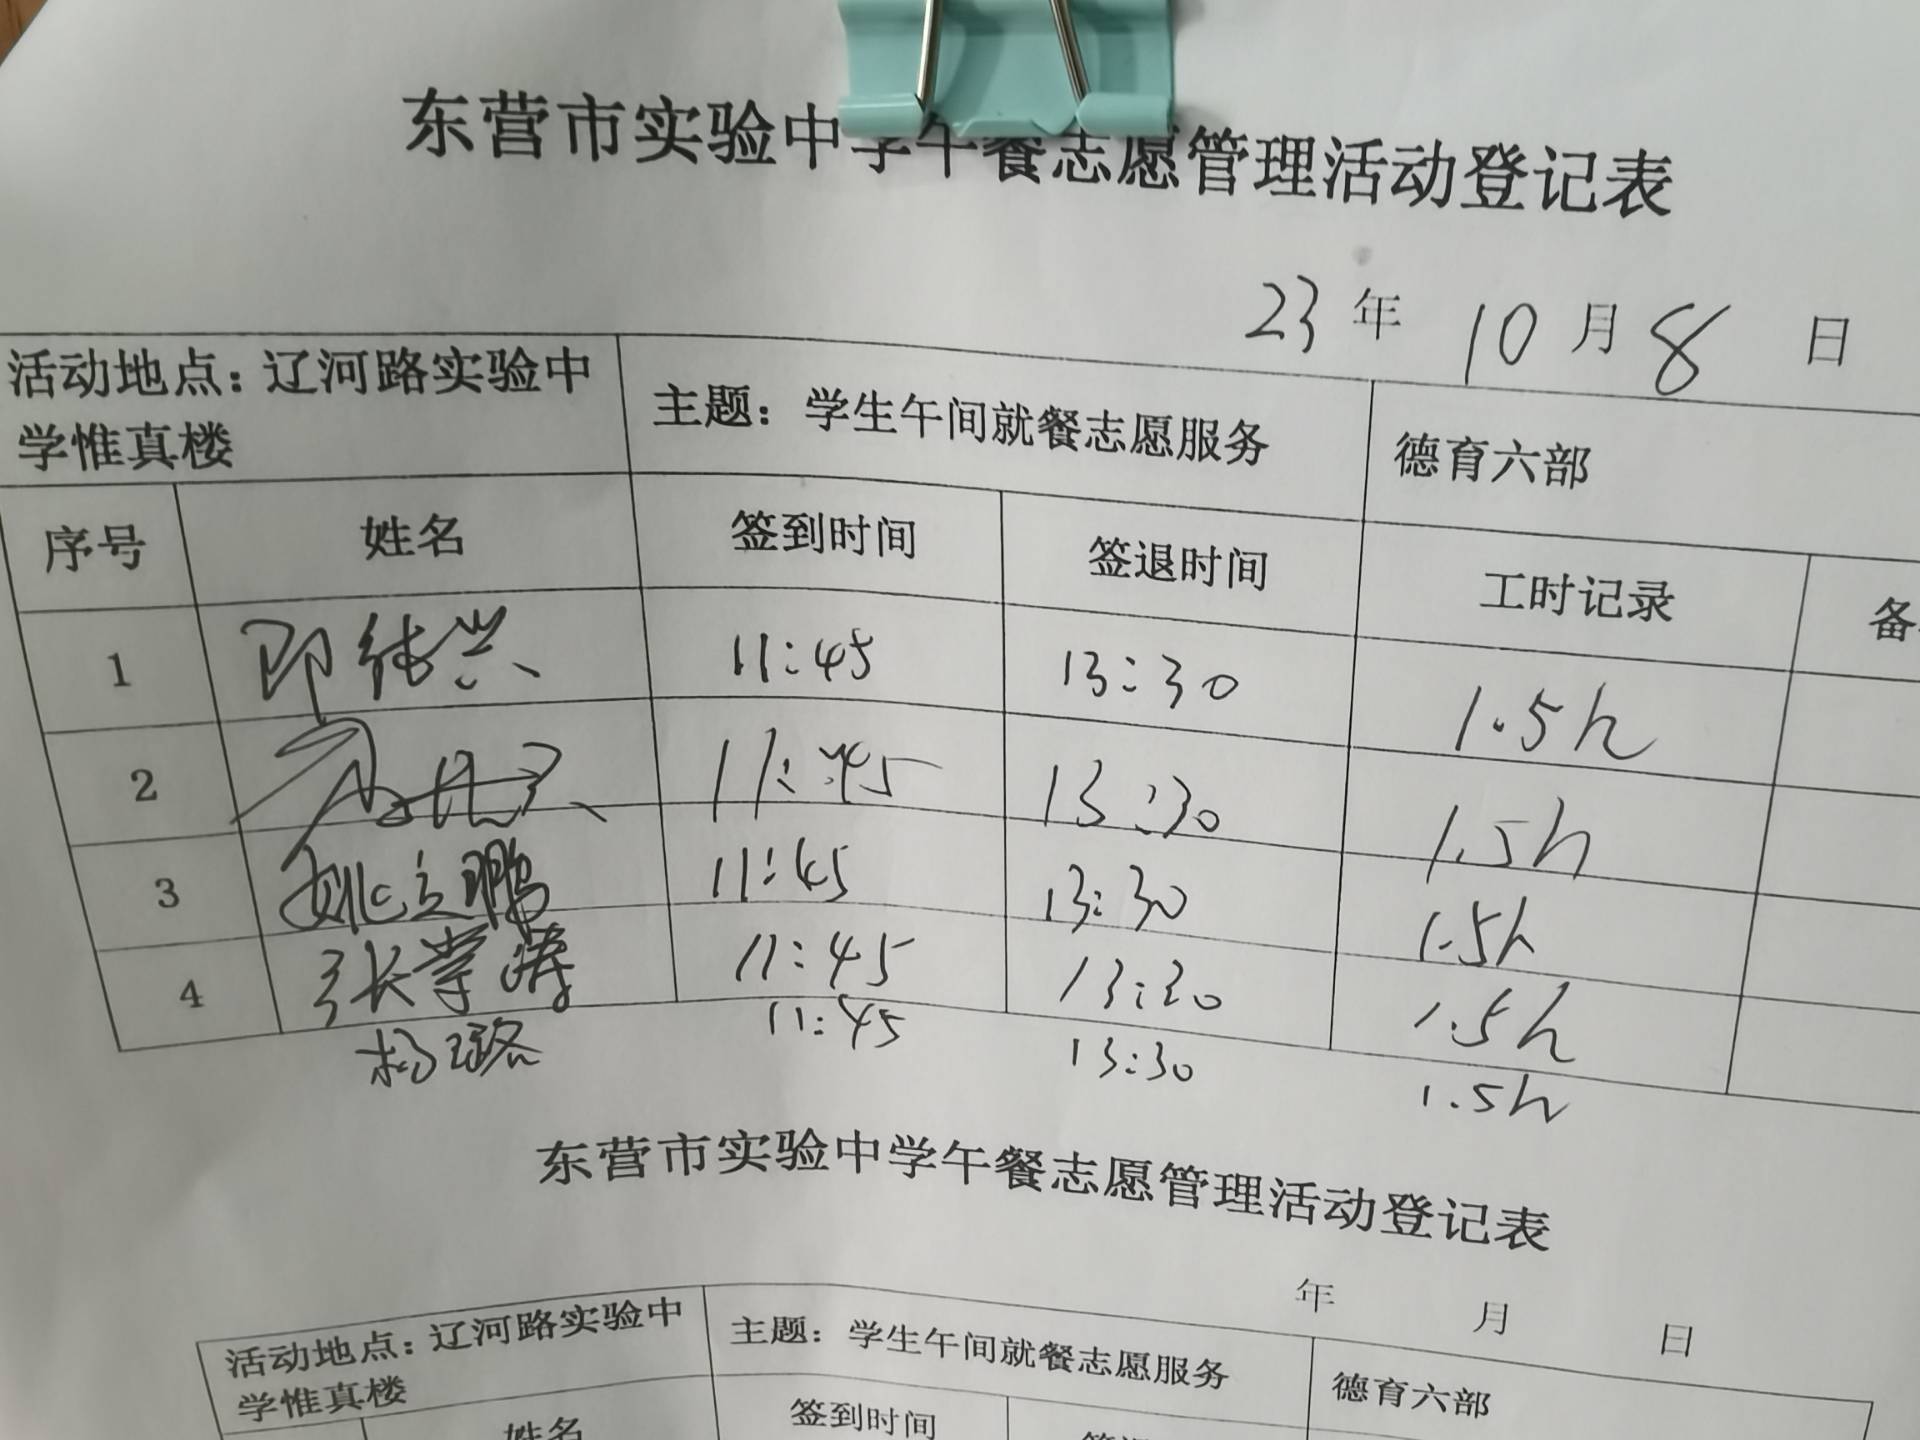 东营市实验中学午餐志愿管理活动登记表
23年 10月8日
活动地点：辽河路实验中学惟真楼 主题：学生午间就餐志愿服务 德育六部
序号 姓名 签到时间 签退时间 工时记录 备
1 11:45 13:30 1.5h
2 11:45 13:30 1.5h
3 姚立鹏 11:45 13:30 1.5h
4 张常涛 11:45 13:30 1.5h
杨璐 11:45 13:30 1.5h
东营市实验中学午餐志愿管理活动登记表
年 月 日
活动地点：辽河路实验中学惟真楼 主题：学生午间就餐志愿服务 德育六部
姓名 签到时间